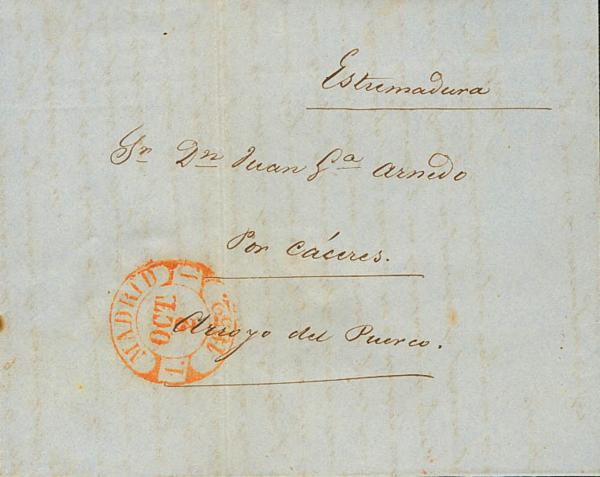 Estremadura
Sr Dn Juan Ga Arnedo
Por Cáceres.
MADRID
OCT.
Arroyo del Puerco.